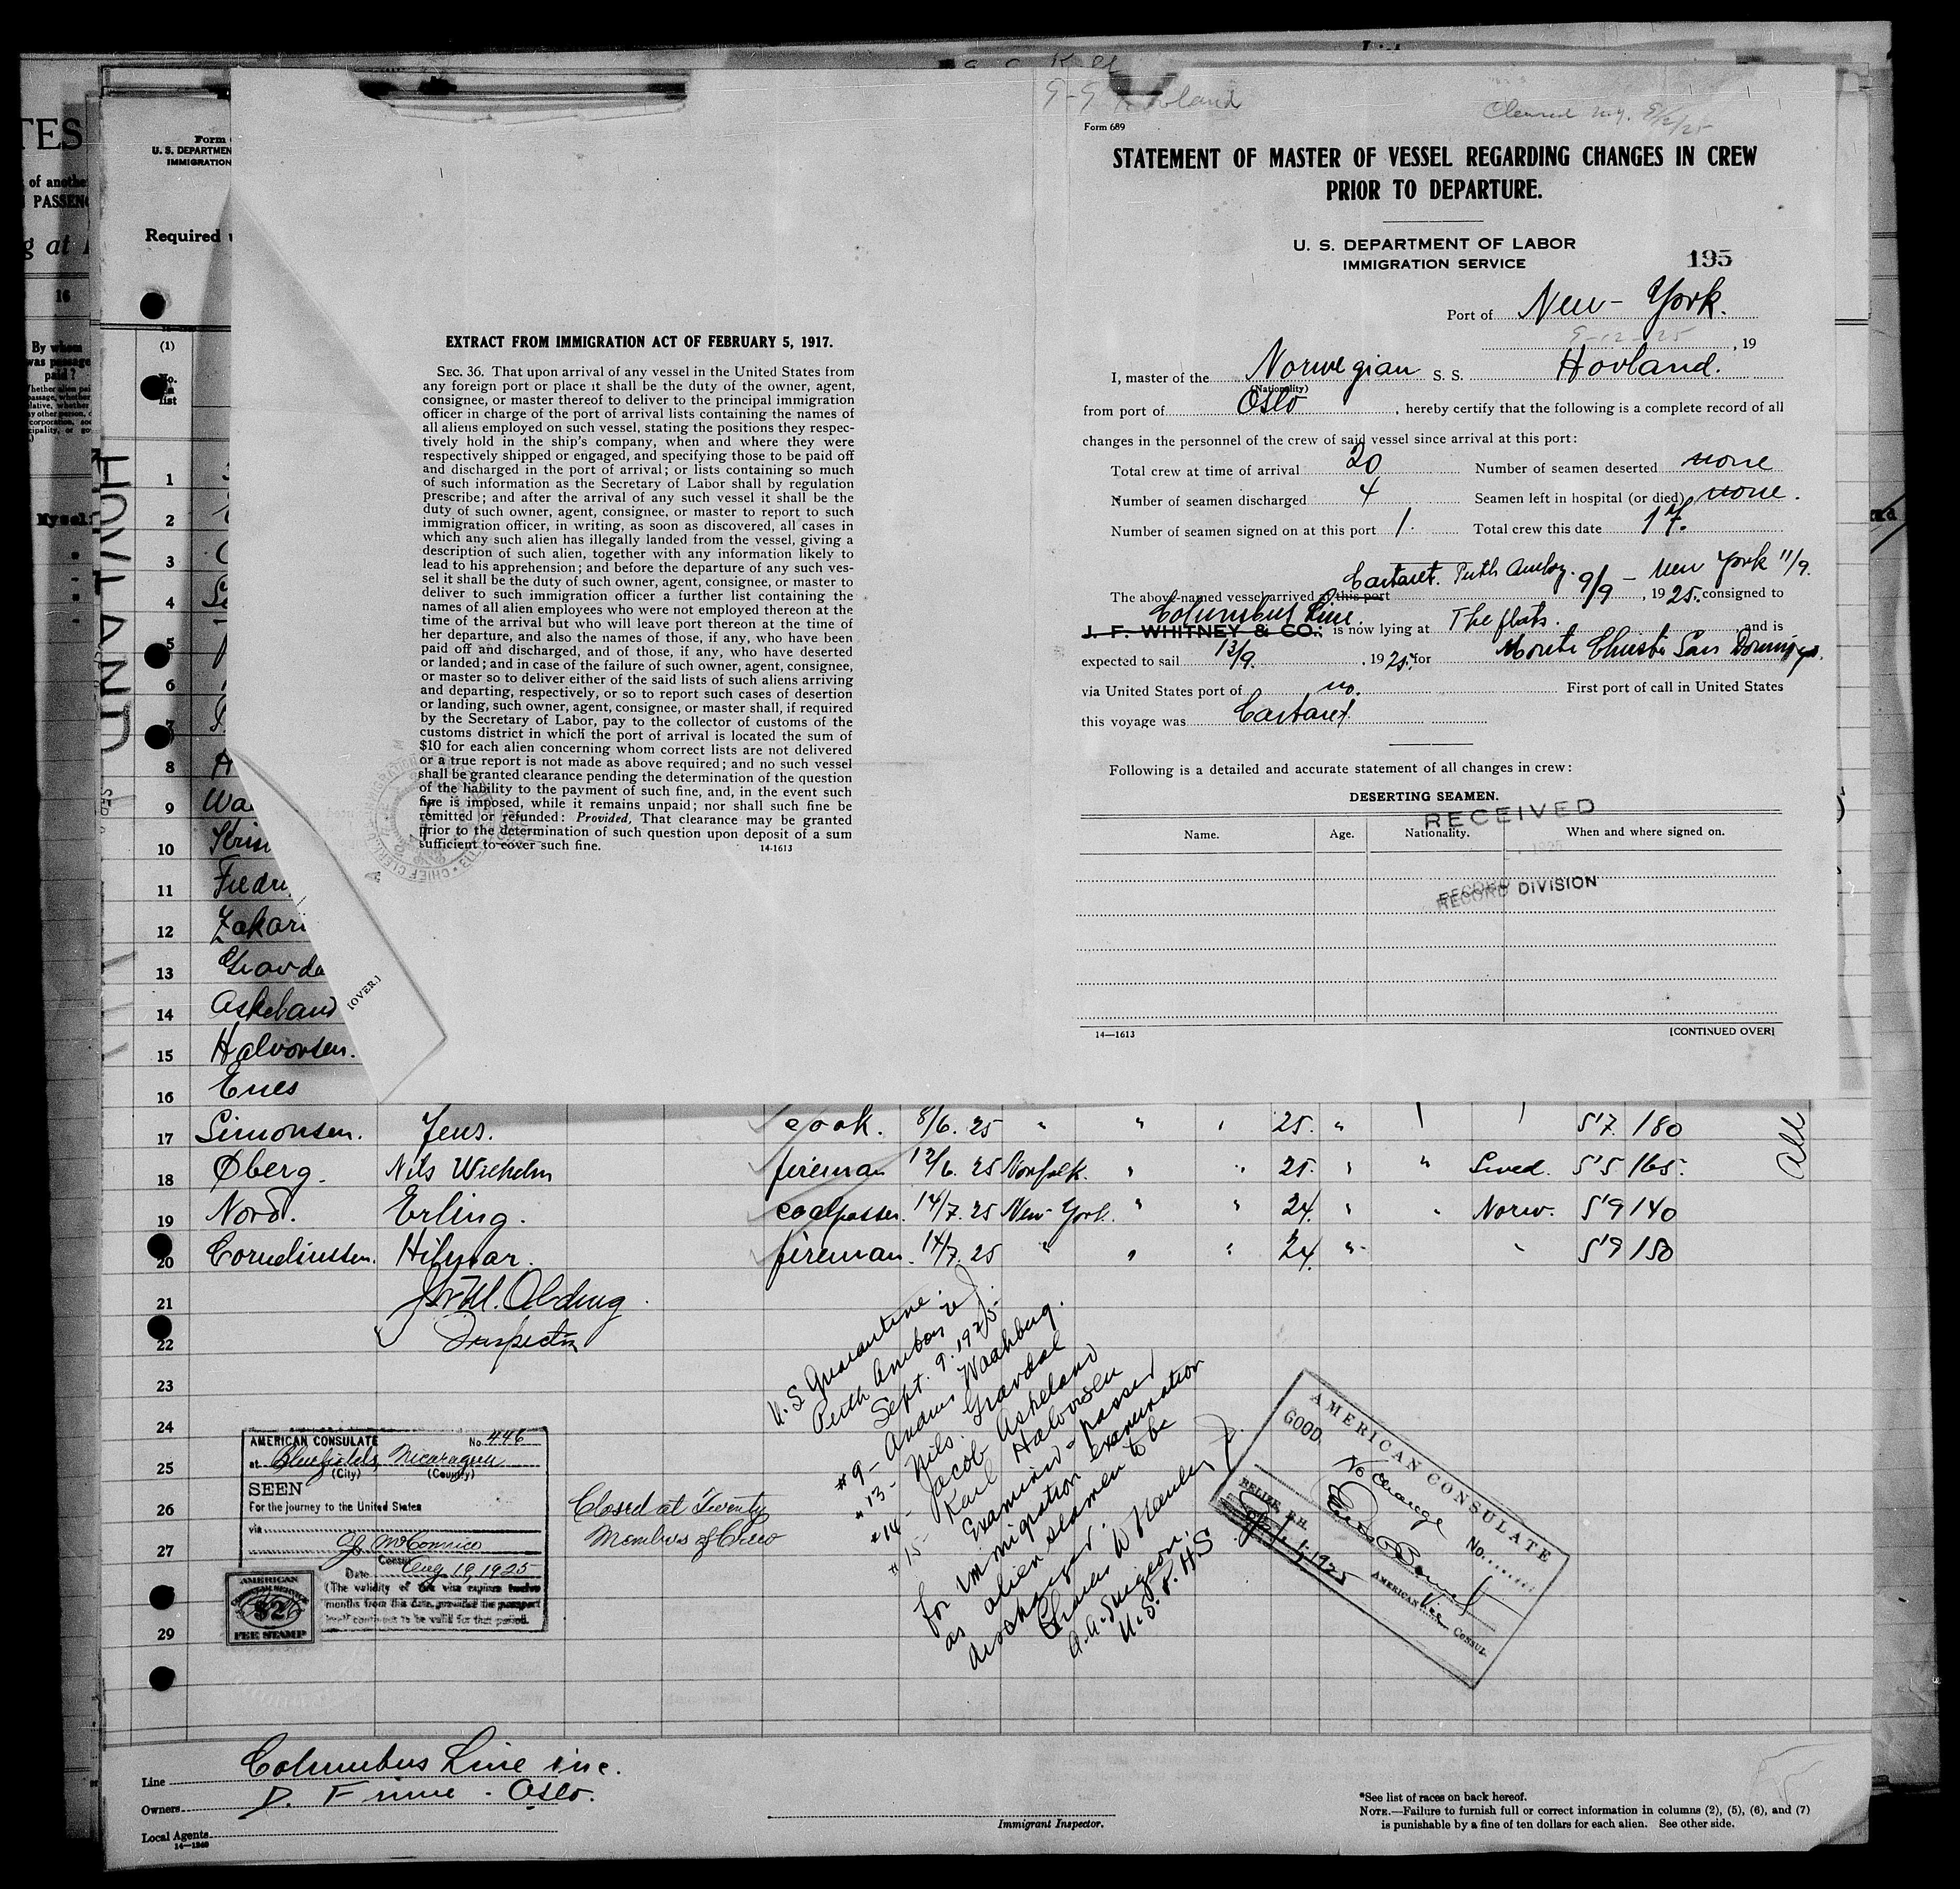 TES
of anothe
PASSEN
g at
16
By whom
was passage
paid?
Myself
HOVLAND
Form
U. S. DEPARTMEN
IMMIGRATION
Required
(1)
No.
list
1
2
3
4
5
6
7
8
9 Wa
10
11 Fredri
12 Zakari
13 Gravda
14 Askeland
15 Halvorsen.
16 Enes
[OVER.]
EXTRACT FROM IMMIGRATION ACT OF FEBRUARY 5, 1917.
SEC. 36. That upon arrival of any vessel in the United States from
any foreign port or place it shall be the duty of the owner, agent,
consignee, or master thereof to deliver to the principal immigration
officer in charge of the port of arrival lists containing the names of
all aliens employed on such vessel, stating the positions they respec-
tively hold in the ship's company, when and where they were
respectively shipped or engaged, and specifying those to be paid off
and discharged in the port of arrival; or lists containing so much
of such information as the Secretary of Labor shall by regulation
prescribe; and after the arrival of any such vessel it shall be the
duty of such owner, agent, consignee, or master to report to such
immigration officer, in writing, as soon as discovered, all cases in
which any such alien has illegally landed from the vessel, giving a
description of such alien, together with any information likely to
lead to his apprehension; and before the departure of any such ves-
sel it shall be the duty of such owner, agent, consignee, or master to
deliver to such immigration officer a further list containing the
names of all alien employees who were not employed thereon at the
time of the arrival but who will leave port thereon at the time of
her departure, and also the names of those, if any, who have been
paid off and discharged, and of those, if any, who have deserted
or landed; and in case of the failure of such owner, agent, consignee,
or master so to deliver either of the said lists of such aliens arriving
and departing, respectively, or so to report such cases of desertion
or landing, such owner, agent, consignee, or master shall, if required
by the Secretary of Labor, pay to the collector of customs of the
customs district in which the port of arrival is located the sum of
$10 for each alien concerning whom correct lists are not delivered
or a true report is not made as above required; and no such vessel
shall be granted clearance pending the determination of the question
of the liability to the payment of such fine, and, in the event such
fine is imposed, while it remains unpaid; nor shall such fine be
remitted or refunded: Provided, That clearance may be granted
prior to the determination of such question upon deposit of a sum
sufficient to cover such fine.
14-1613
Cleared N.Y. 9/12/25
Form 689
STATEMENT OF MASTER OF VESSEL REGARDING CHANGES IN CREW
PRIOR TO DEPARTURE.
U. S. DEPARTMENT OF LABOR
IMMIGRATION SERVICE
195
Port of New-York.
9-12-25, 19
I, master of the Norwegian S. S. Hovland.
(Nationality)
from port of Oslo, hereby certify that the following is a complete record of all
changes in the personnel of the crew of said vessel since arrival at this port:
Total crew at time of arrival 20 Number of seamen deserted none
Number of seamen discharged 4 Seamen left in hospital (or died) none.
Number of seamen signed on at this port 1. Total crew this date 17.
Cartaret. Perth Amboy. 9/9 - New York 11/9.
The above-named vessel arrived at this port , 1925, consigned to
Columbus Line.
J. F. WHITNEY & CO.: is now lying at The flats. and is
expected to sail 13/9. , 1925, for Monte Christi San Domingo.
via United States port of no. First port of call in United States
this voyage was Cartaret.
Following is a detailed and accurate statement of all changes in crew:
DESERTING SEAMEN.
RECEIVED
Name. Age. Nationality. When and where signed on.
RECORD DIVISION
14—1613 [CONTINUED OVER]
17 Simonsen. Jens. cook. 8/6. 25 " " " 25. " 5'7 180
18 Øberg. Nils Wilhelm fireman 12/6. 25 Norfolk. " " 25. " " Swed. 5'5 165.
19 Nord. Erling. coalpasser. 14/7. 25 New-York. " " 24. " " Norw. 5'9 140
20 Corneliussen. Hilmar. fireman. 14/7. 25 " " " 24. " " 5'9 150
All
21
22 Inspector
23
24
25
26
27
29
AMERICAN CONSULATE No. 446
at Bluefields, Nicaragua
(City) (Country)
SEEN
For the journey to the United States
via
Consul
Date Aug 19, 1925
(The validity of this visa expires twelve
months from this date, provided the passport
itself continues to be valid for that period.
AMERICAN
$2
FEE STAMP
Closed at Twenty
Members of Crew
U.S. Quarantine.
Perth Amboy NJ.
Sept. 9. 1925.
#9- Andrew Waahberg.
"13- Nils. Gravdal
"14- Jacob Askeland
"15- Karl Halvorsen
Examined - passed
for immigration examination
as alien seamen to be
discharged.
A.A. Surgeon,
U.S.P.H.S
AMERICAN CONSULATE
GOOD.
No change
No.
BELIZE, B.H.
Sept 1, 1925
AMERICAN Vice CONSUL
Line Columbus Line inc.
Owners D. Frime - Oslo.
Local Agents
14—1240
Immigrant Inspector.
*See list of races on back hereof.
NOTE.—Failure to furnish full or correct information in columns (2), (5), (6), and (7)
is punishable by a fine of ten dollars for each alien. See other side.